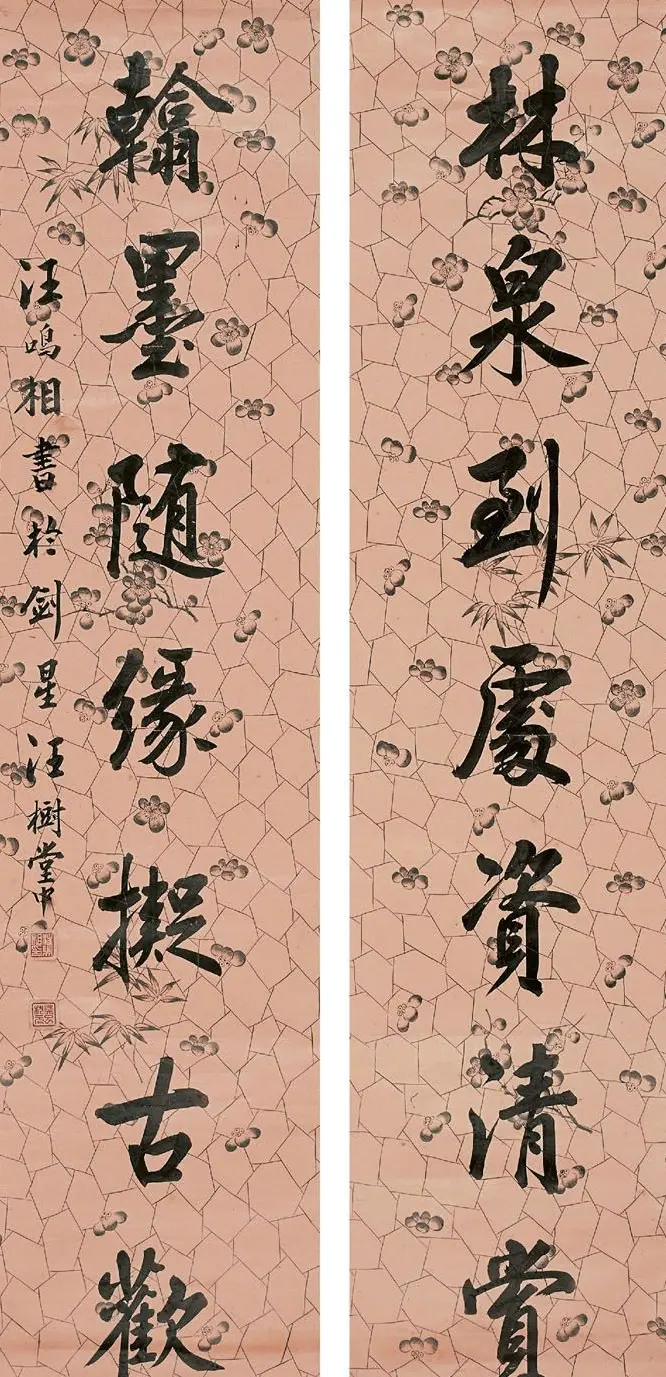 林泉到處資清賞
翰墨隨緣擬古歡
汪鳴相書於劍星汪樹堂中